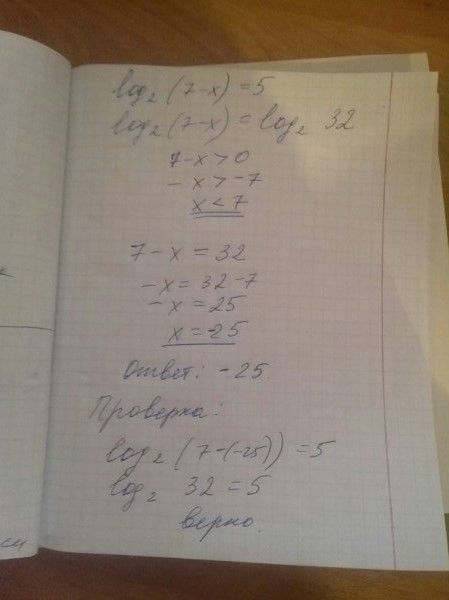 log₂ (7-x) = 5
log₂ (7-x) = log₂ 32
7-x > 0
-x > -7
x < 7
7-x = 32
-x = 32-7
-x = 25
x = -25
Ответ: -25
Проверка:
log₂ (7-(-25)) = 5
log₂ 32 = 5
верно.